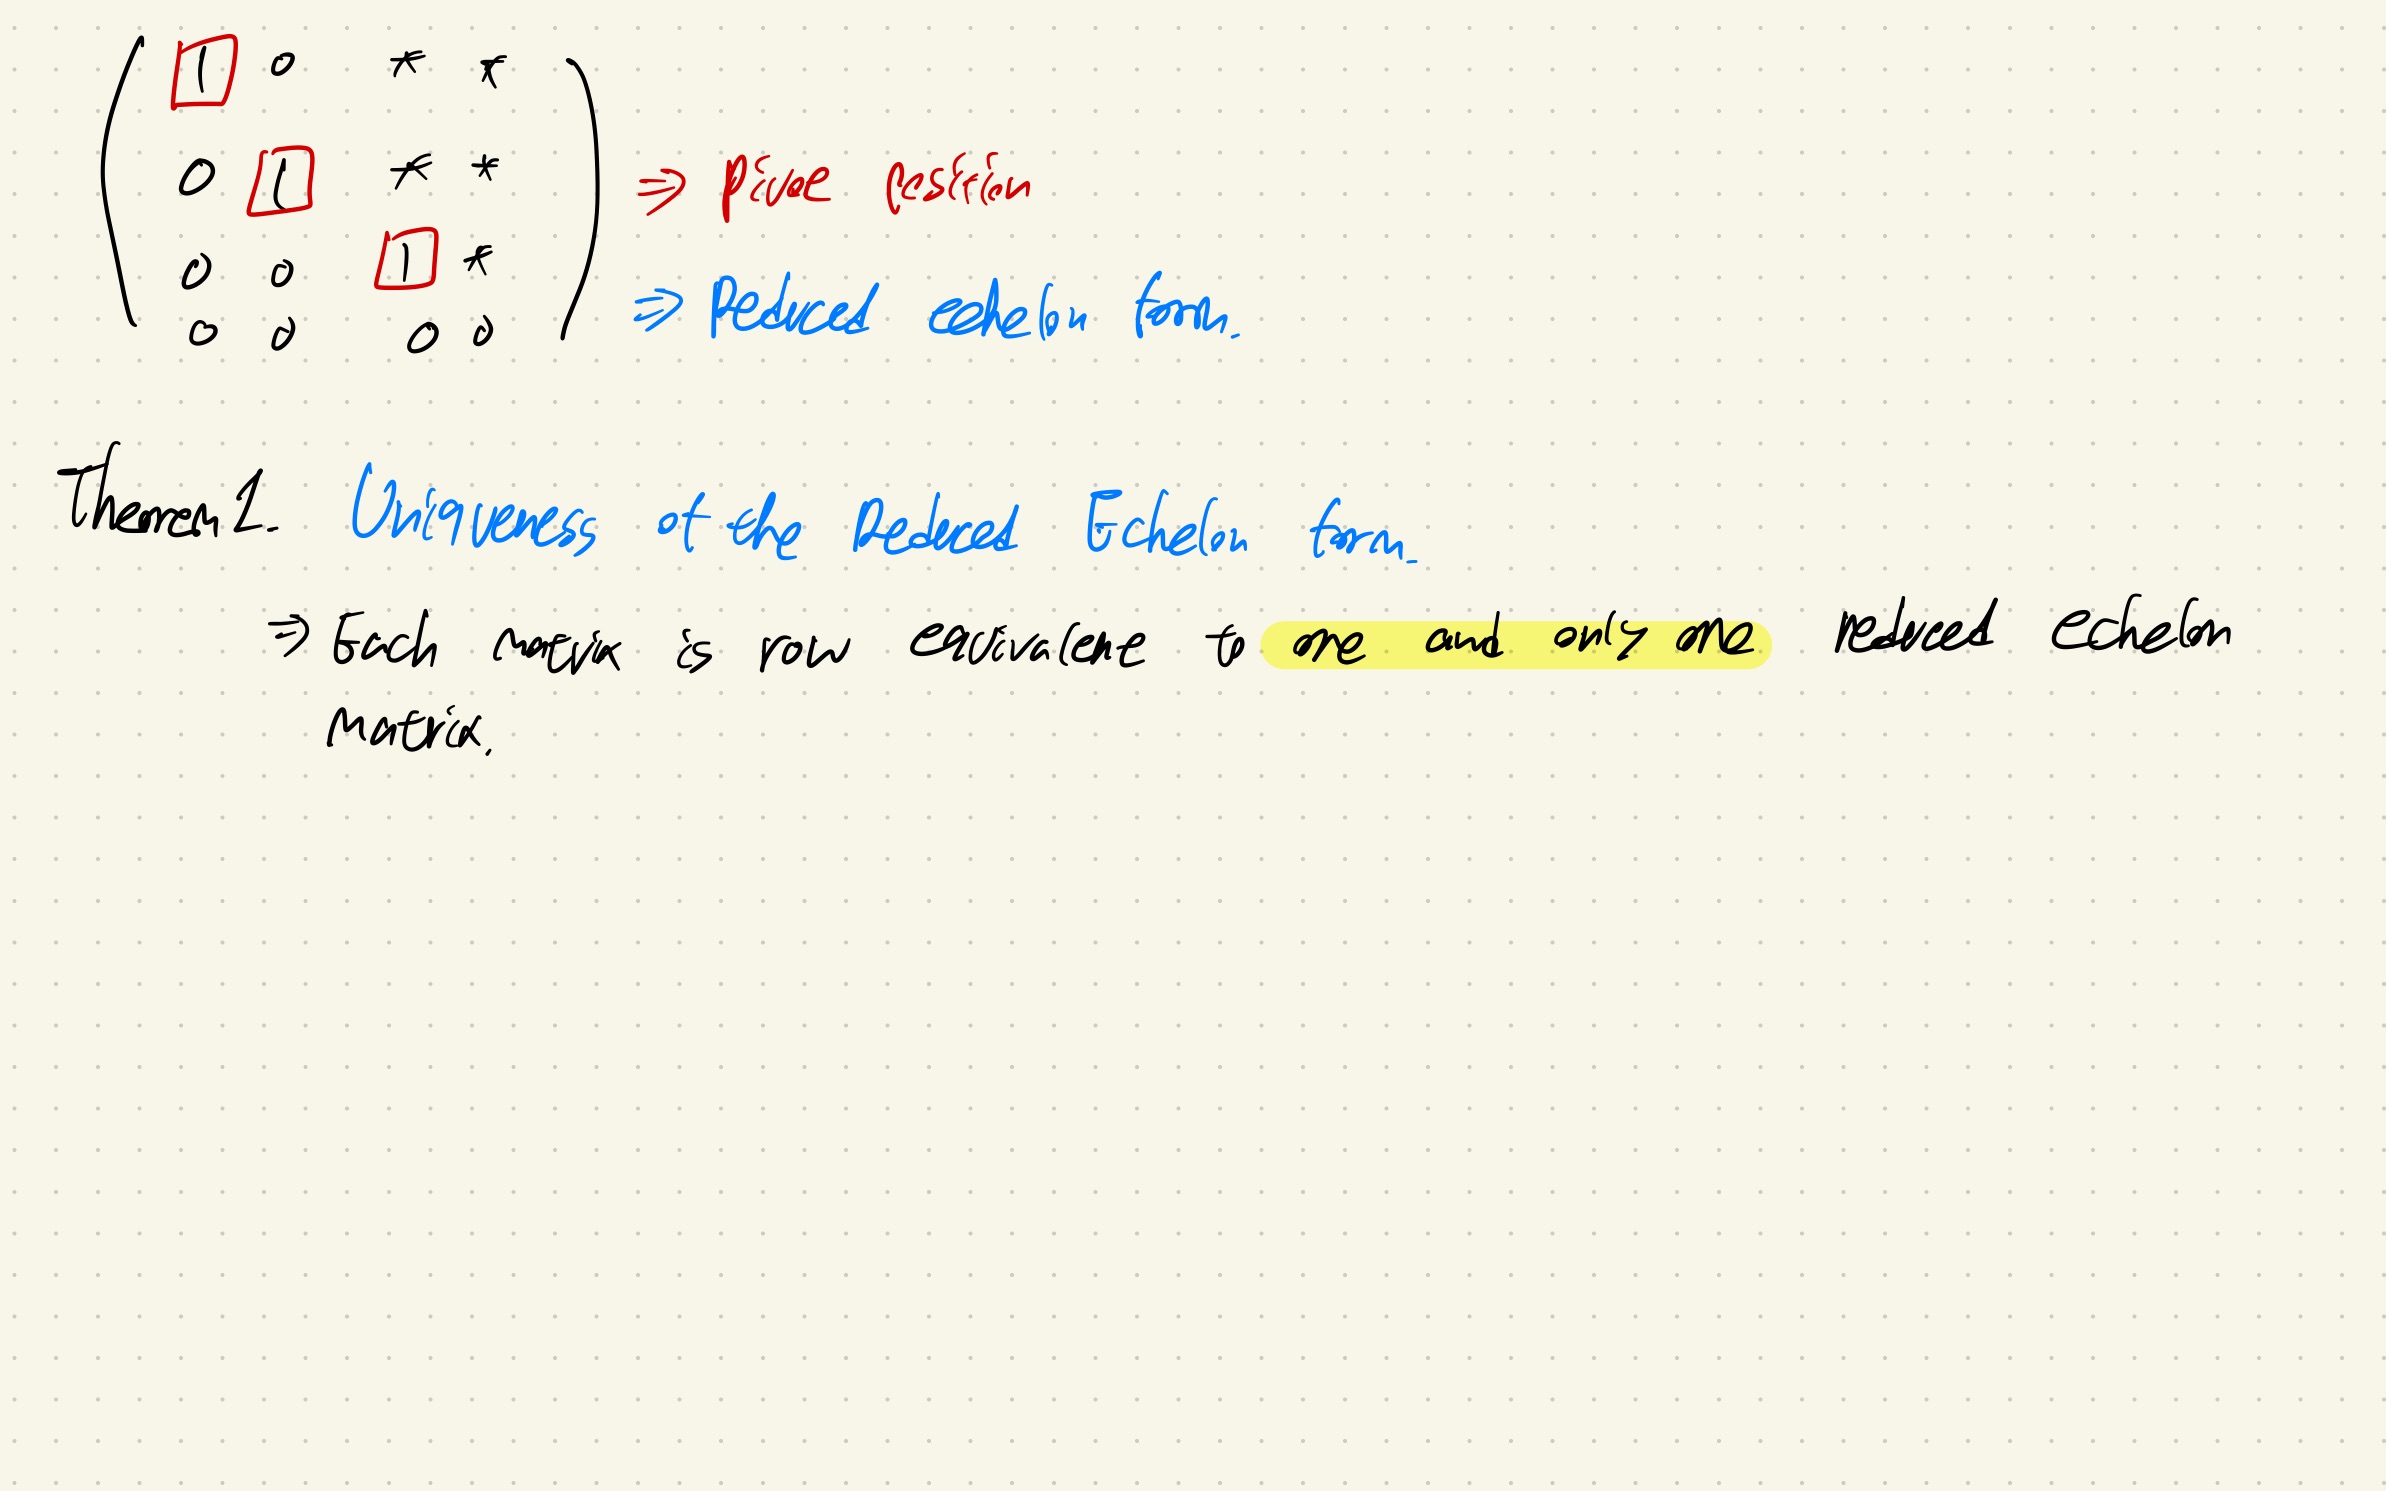 1 0 * *
0 1 * *
⇒ pivot position
0 0 1 *
⇒ Reduced echelon form.
0 0 0 0
Theorem 1. Uniqueness of the Reduced Echelon form.
⇒ Each matrix is row equivalent to one and only one reduced echelon
matrix.